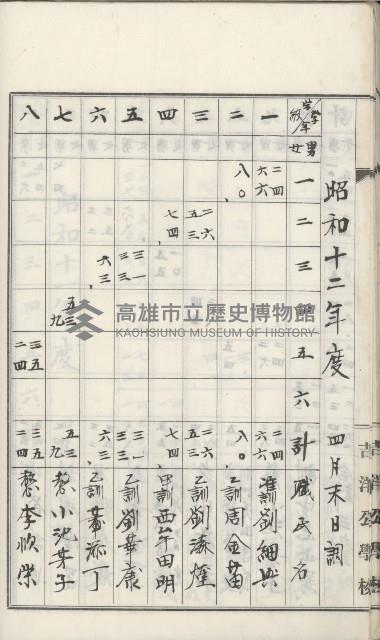 昭和十二年度 四月末日調
学級 学年 一 二 三 四 五 六 計 職氏名
男女
一 二四 六六 二四 六六 准訓 劉細興
二 八〇 八〇 乙訓 周金苗
三 二六 五三 二六 五三 乙訓
四 七四 七四 甲訓 田明
五 三一 三三 三一 三三 乙訓 劉華康
六 六三 六三 乙訓 葉添丁
七 五三 九 五三 九 教 小池芳子
八 三五 二四 三五 二四 教 李順榮
公學校
高雄市立歷史博物館
KAOHSIUNG MUSEUM OF HISTORY